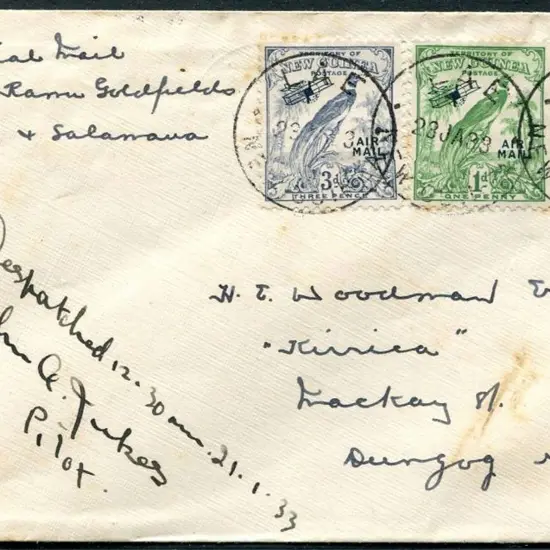 ial Mail
Ramu Goldfields
& Salamaua
TERRITORY OF
NEW GUINEA
POSTAGE
AIR
MAIL
3d
THREE PENCE
TERRITORY OF
NEW GUINEA
POSTAGE
23 JA 33
AIR
MAIL
1d
ONE PENNY
H. E. Woodman E
"Kirrica"
Mackay St.
Dungog
Despatched 12.30 am. 21.1.33
A. Jukes
Pilot.